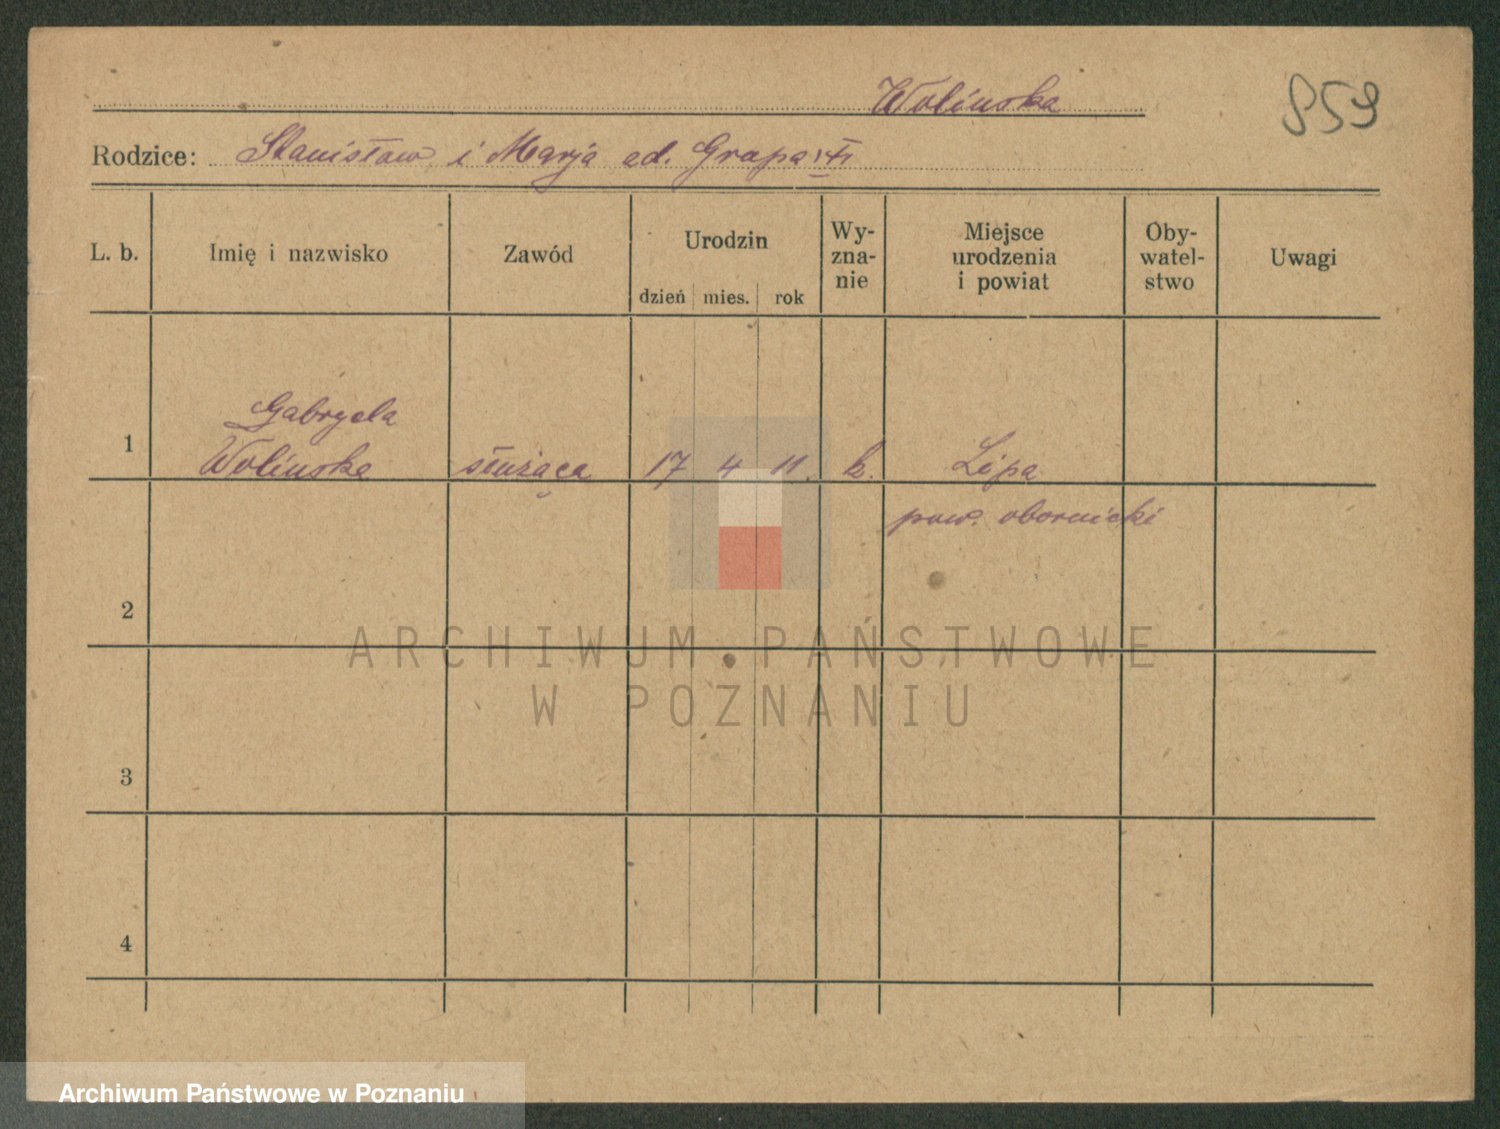 Wolinska
859
Rodzice: Stanisław i Marja
L. b.
Imię i nazwisko
Zawód
Urodzin
dzień mies. rok
Wy-
zna-
nie
Miejsce
urodzenia
i powiat
Oby-
watel-
stwo
Uwagi
Gabryela
1 Wolinska służąca 17 4 11. k. Lipa
pow. obornicki
2
ARCHIWUM PAŃSTWOWE
W POZNANIU
3
4
Archiwum Państwowe w Poznaniu